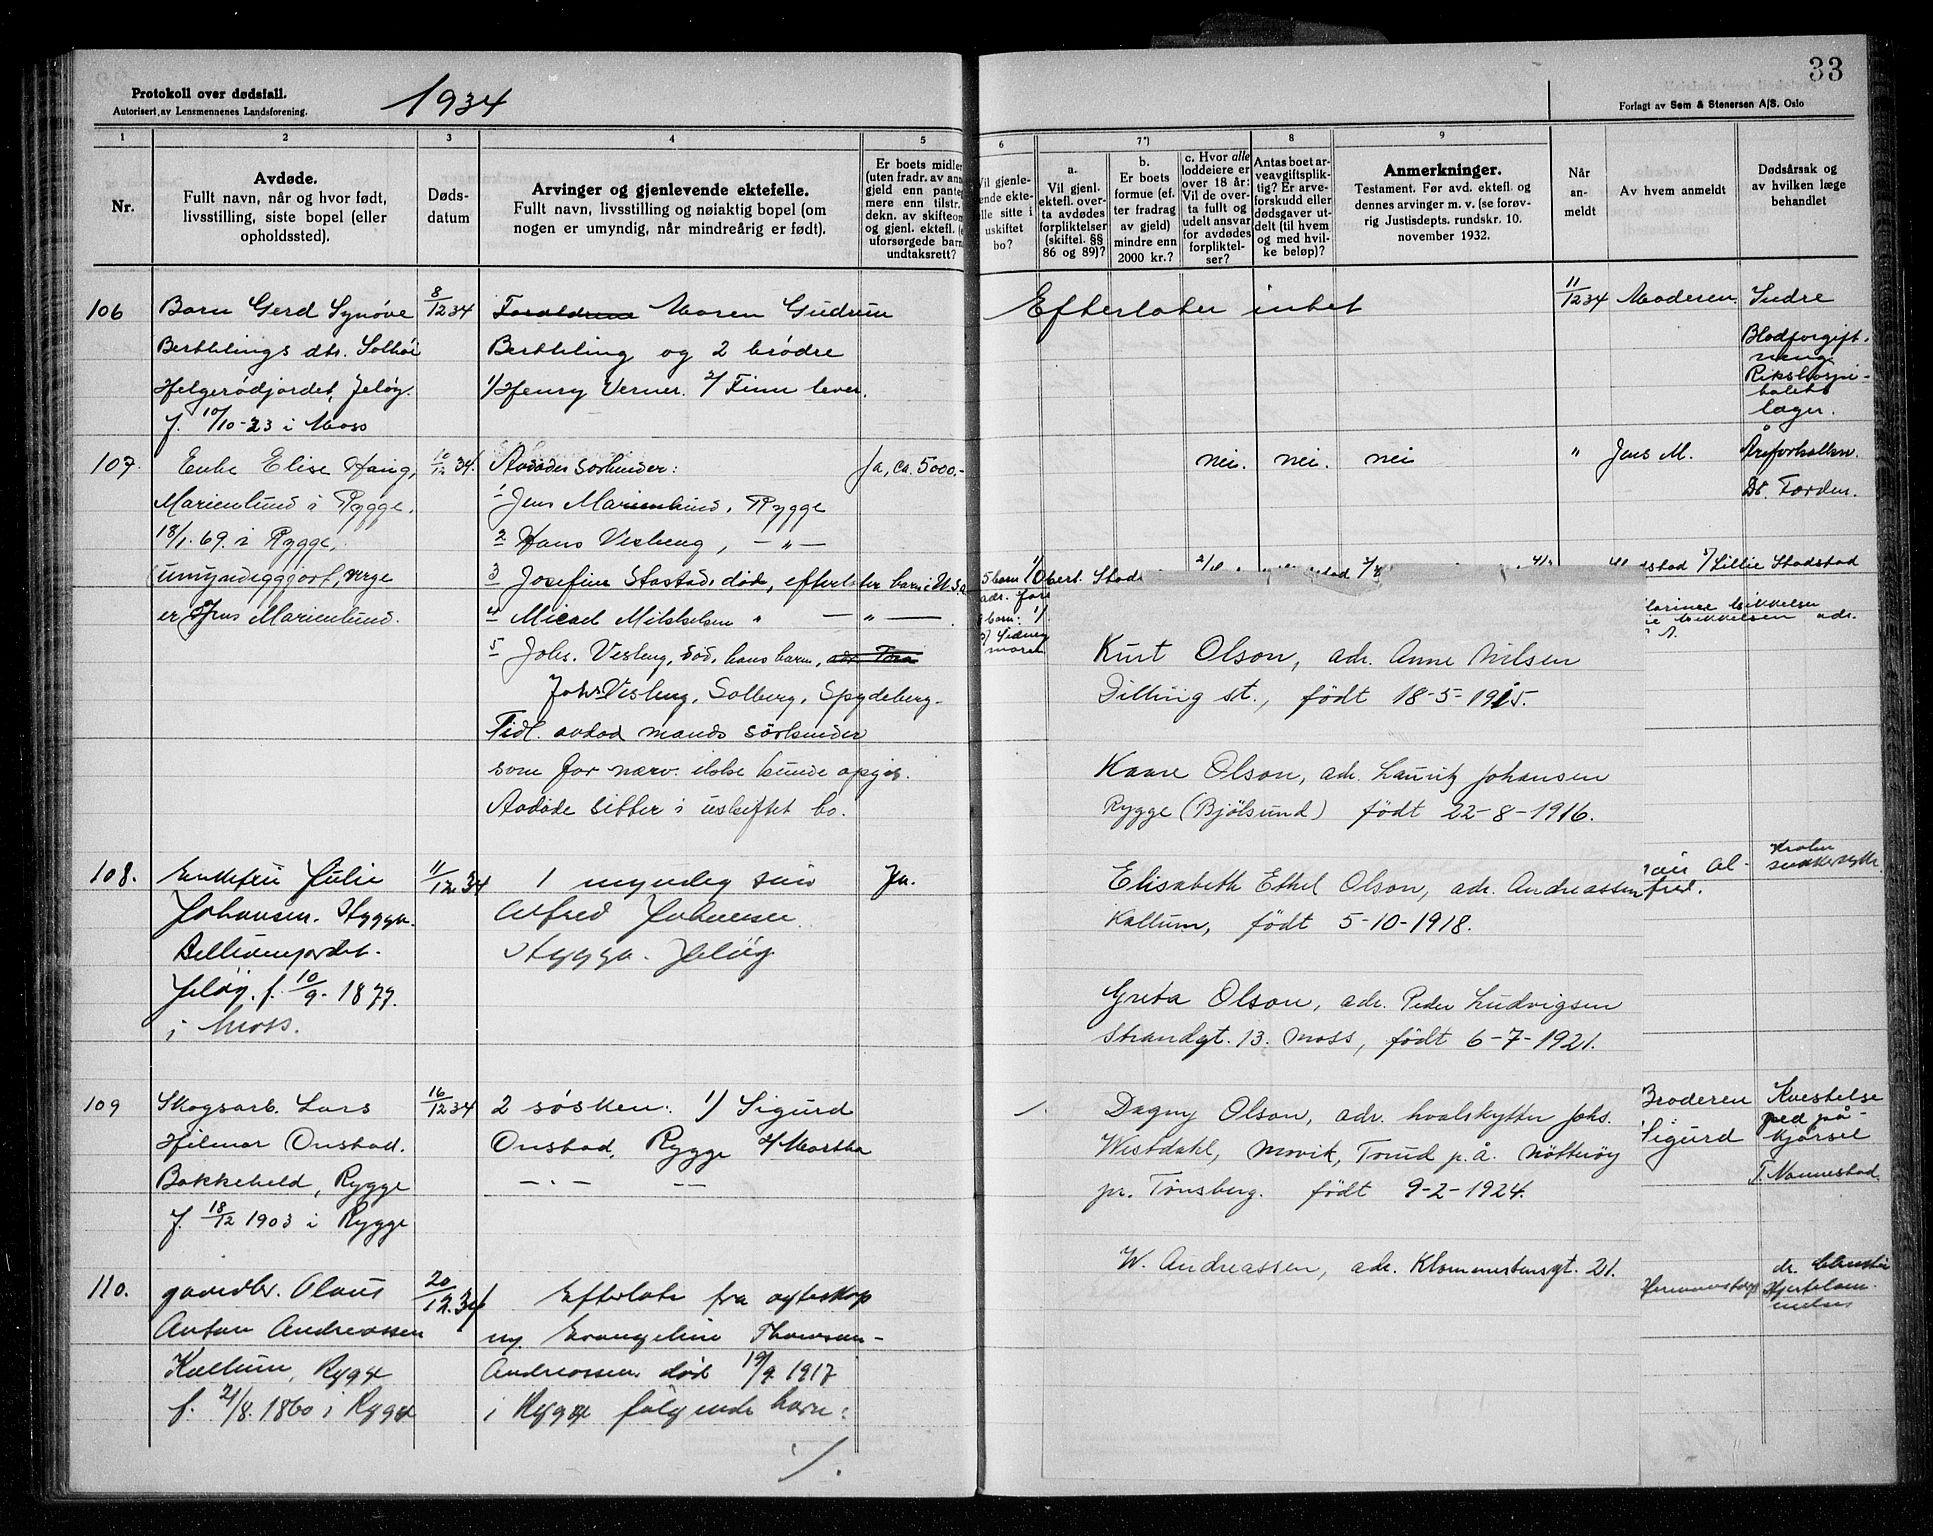 33
Protokoll over dødsfall.
Autorisert av Lensmennenes Landsforening.
1934
Forlagt av Sem & Stenersen A/S. Oslo
1 2 3 4 5 6 7*) 8 9
Nr.
Avdøde.
Fullt navn, når og hvor født,
livsstilling, siste bopel (eller
opholdssted).
Døds-
datum
Arvinger og gjenlevende ektefelle.
Fullt navn, livsstilling og nøiaktig bopel (om
nogen er umyndig, når mindreårig er født).
Er boets midler
(uten fradr. av ann
gjeld enn pante
mere enn tilstr.
dekn. av skifteom
og gjenl. ektefl. (e
uforsørgede barn
undtaksrett?
Vil gjenle-
ende ekte-
lle sitte i
uskiftet
bo?
a.
Vil gjenl.
ektefl. over-
ta avdødes
forpliktelser
(skiftel. §§
86 og 89)?
b.
Er boets
formue (ef.
ter fradrag
av gjeld)
mindre enn
2000 kr.?
c. Hvor alle
loddeiere er
over 18 år:
Vil de over-
ta fullt og
udelt ansvar
for avdødes
forpliktel-
ser?
Antas boet ar-
veavgiftsplik-
tig? Er arve-
forskudd eller
dødsgaver ut-
delt (til hvem
og med hvil-
ke beløp)?
Anmerkninger.
Testament. Før avd. ektefl. og
dennes arvinger m. v. (se forøv-
rig Justisdepts. rundskr. 10.
november 1932.
Når
an-
meldt
Av hvem anmeldt
Dødsårsak og
av hvilken læge
behandlet
106 Barn Gerd Synøve
Berthlings dtr. Solhøi
Helgerødjordet, Jeløy.
f. 10/10-23 i Moss
8/12 34
Foreldrene Moren Gudrun
Berthling og 2 brødre
1/ Henry Verner. 2/ Finn lever.
Efterlater intet
11/12 34 Moderen.
Indre
Blodforgift-
ning
Rikshospi-
talets
læger.
107. Enke Elise Haug,
Marienlund i Rygge.
18/1. 69. i Rygge,
umyndiggjort, verge
er Jens Marienlund.
10/12 34.
Avdødes søskender:
1 Jens Marienlund, Rygge
2 Hans Visberg, — " —
3 Josefine Stastad, død, efterlater barn i U.S.A
4 Micael Mikkelsen " — " —
5 Johs. Visberg, død, hans barn, adr. Tora
Johs Visberg, Solberg, Spydeberg.
Tidl. avdød mands søskender
som for nærv. ikke kunde opgis.
Avdøde sitter i uskiftet bo.
Ja, ca. 5000.-
nei. nei. nei
" Jens M.
Åreforkalkn.
Dr. Torden.
5 barn 1/ Obert. Stad
5/ Lillie Stadstad
barn: 1/
Mikkelsen adr.
Kurt Olson, adr. Anne Nilsen
Dilling st., født 18-5-1915.
Kaare Olson, adr. Lauritz Johansen
Rygge (Bjølsund) født 22-8-1916.
Elisabeth Ethel Olson, adr. Andreassen
Kallum, født 5-10-1918.
Greta Olson, adr. Peder Ludvigsen
Strandgt. 13. Moss, født 6-7-1921.
Dagny Olson, adr. hvalskytter Johs.
Westdahl, Movik, Toud p.å. Nøtterøy
pr. Tønsberg. født 9-2-1924.
W. Andreassen, adr. Klommestensgt. 21.
108. Enkefru Julie
Johansen. Hygga.
Jeløy. f. 10/9- 1877.
i Moss.
11/12.34
1 myndig søn
Alfred Johansen
Hygga. Jeløy
Ja.
Al-
fred.
sukkersyke
109 Skogsarb. Lars
Hilmar Onstad.
Bakkeheld, Rygge
f. 18/12 1903 i Rygge
16/12 34
2 søsken: 1) Sigurd
Onstad, Rygge 2/ Martha
— . — — —
Broderen
Sigurd
Kvestelse
ved på-
kjørsel
T. Nannestad
110. gaardbr. Olaus
Anton Andreassen
Kallum, Rygge
f. 21/8. 1860 i Rygge
20/12.34
Efterlate fra egteskap
m. Evangeline Thomsen-
Andreassen død 19/9 1917
i Rygge følgende barn:
./.
dr.
Hjertelam-
melse